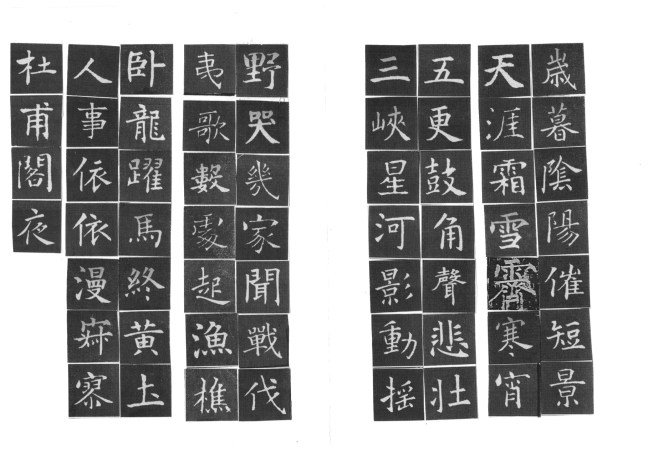 歳暮陰陽催短景
天涯霜雪霽寒宵
五更鼓角聲悲壮
三峽星河影動揺
野哭幾家聞戰伐
夷歌數處起漁樵
卧龍躍馬終黄土
人事依依漫寂寥
杜甫閣夜